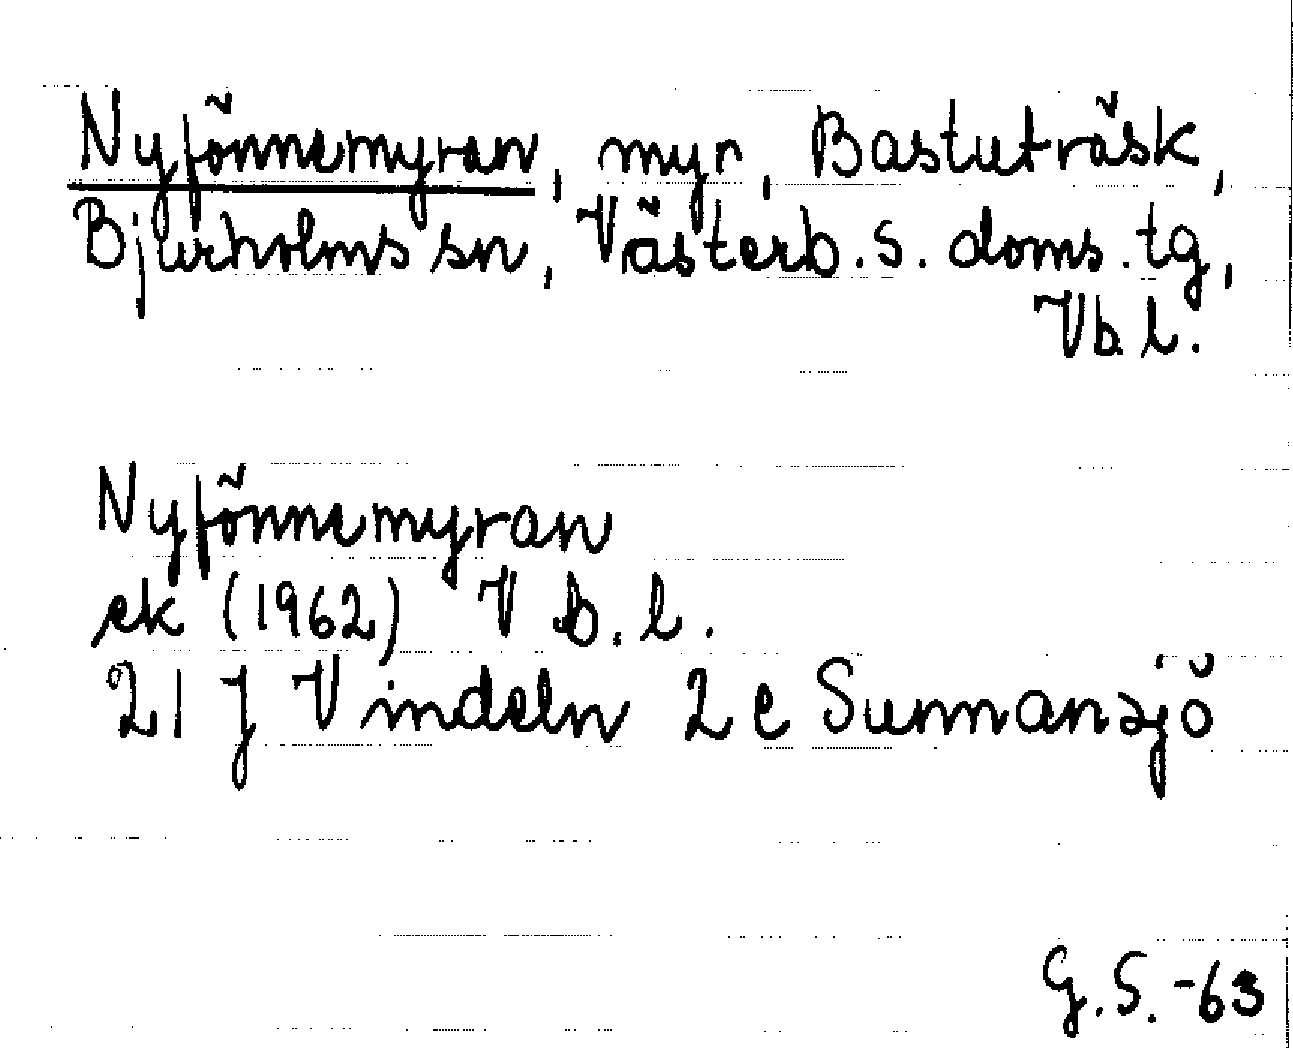 Nyfönnemyran, myr, Bastuträsk,
Bjurholms sn, Västerb. s. doms. tg,
Vb. l.
Nyfönnemyran
ek (1962) Vb. l.
21 J Vindeln 2 e Sunnansjö
G. S. -63